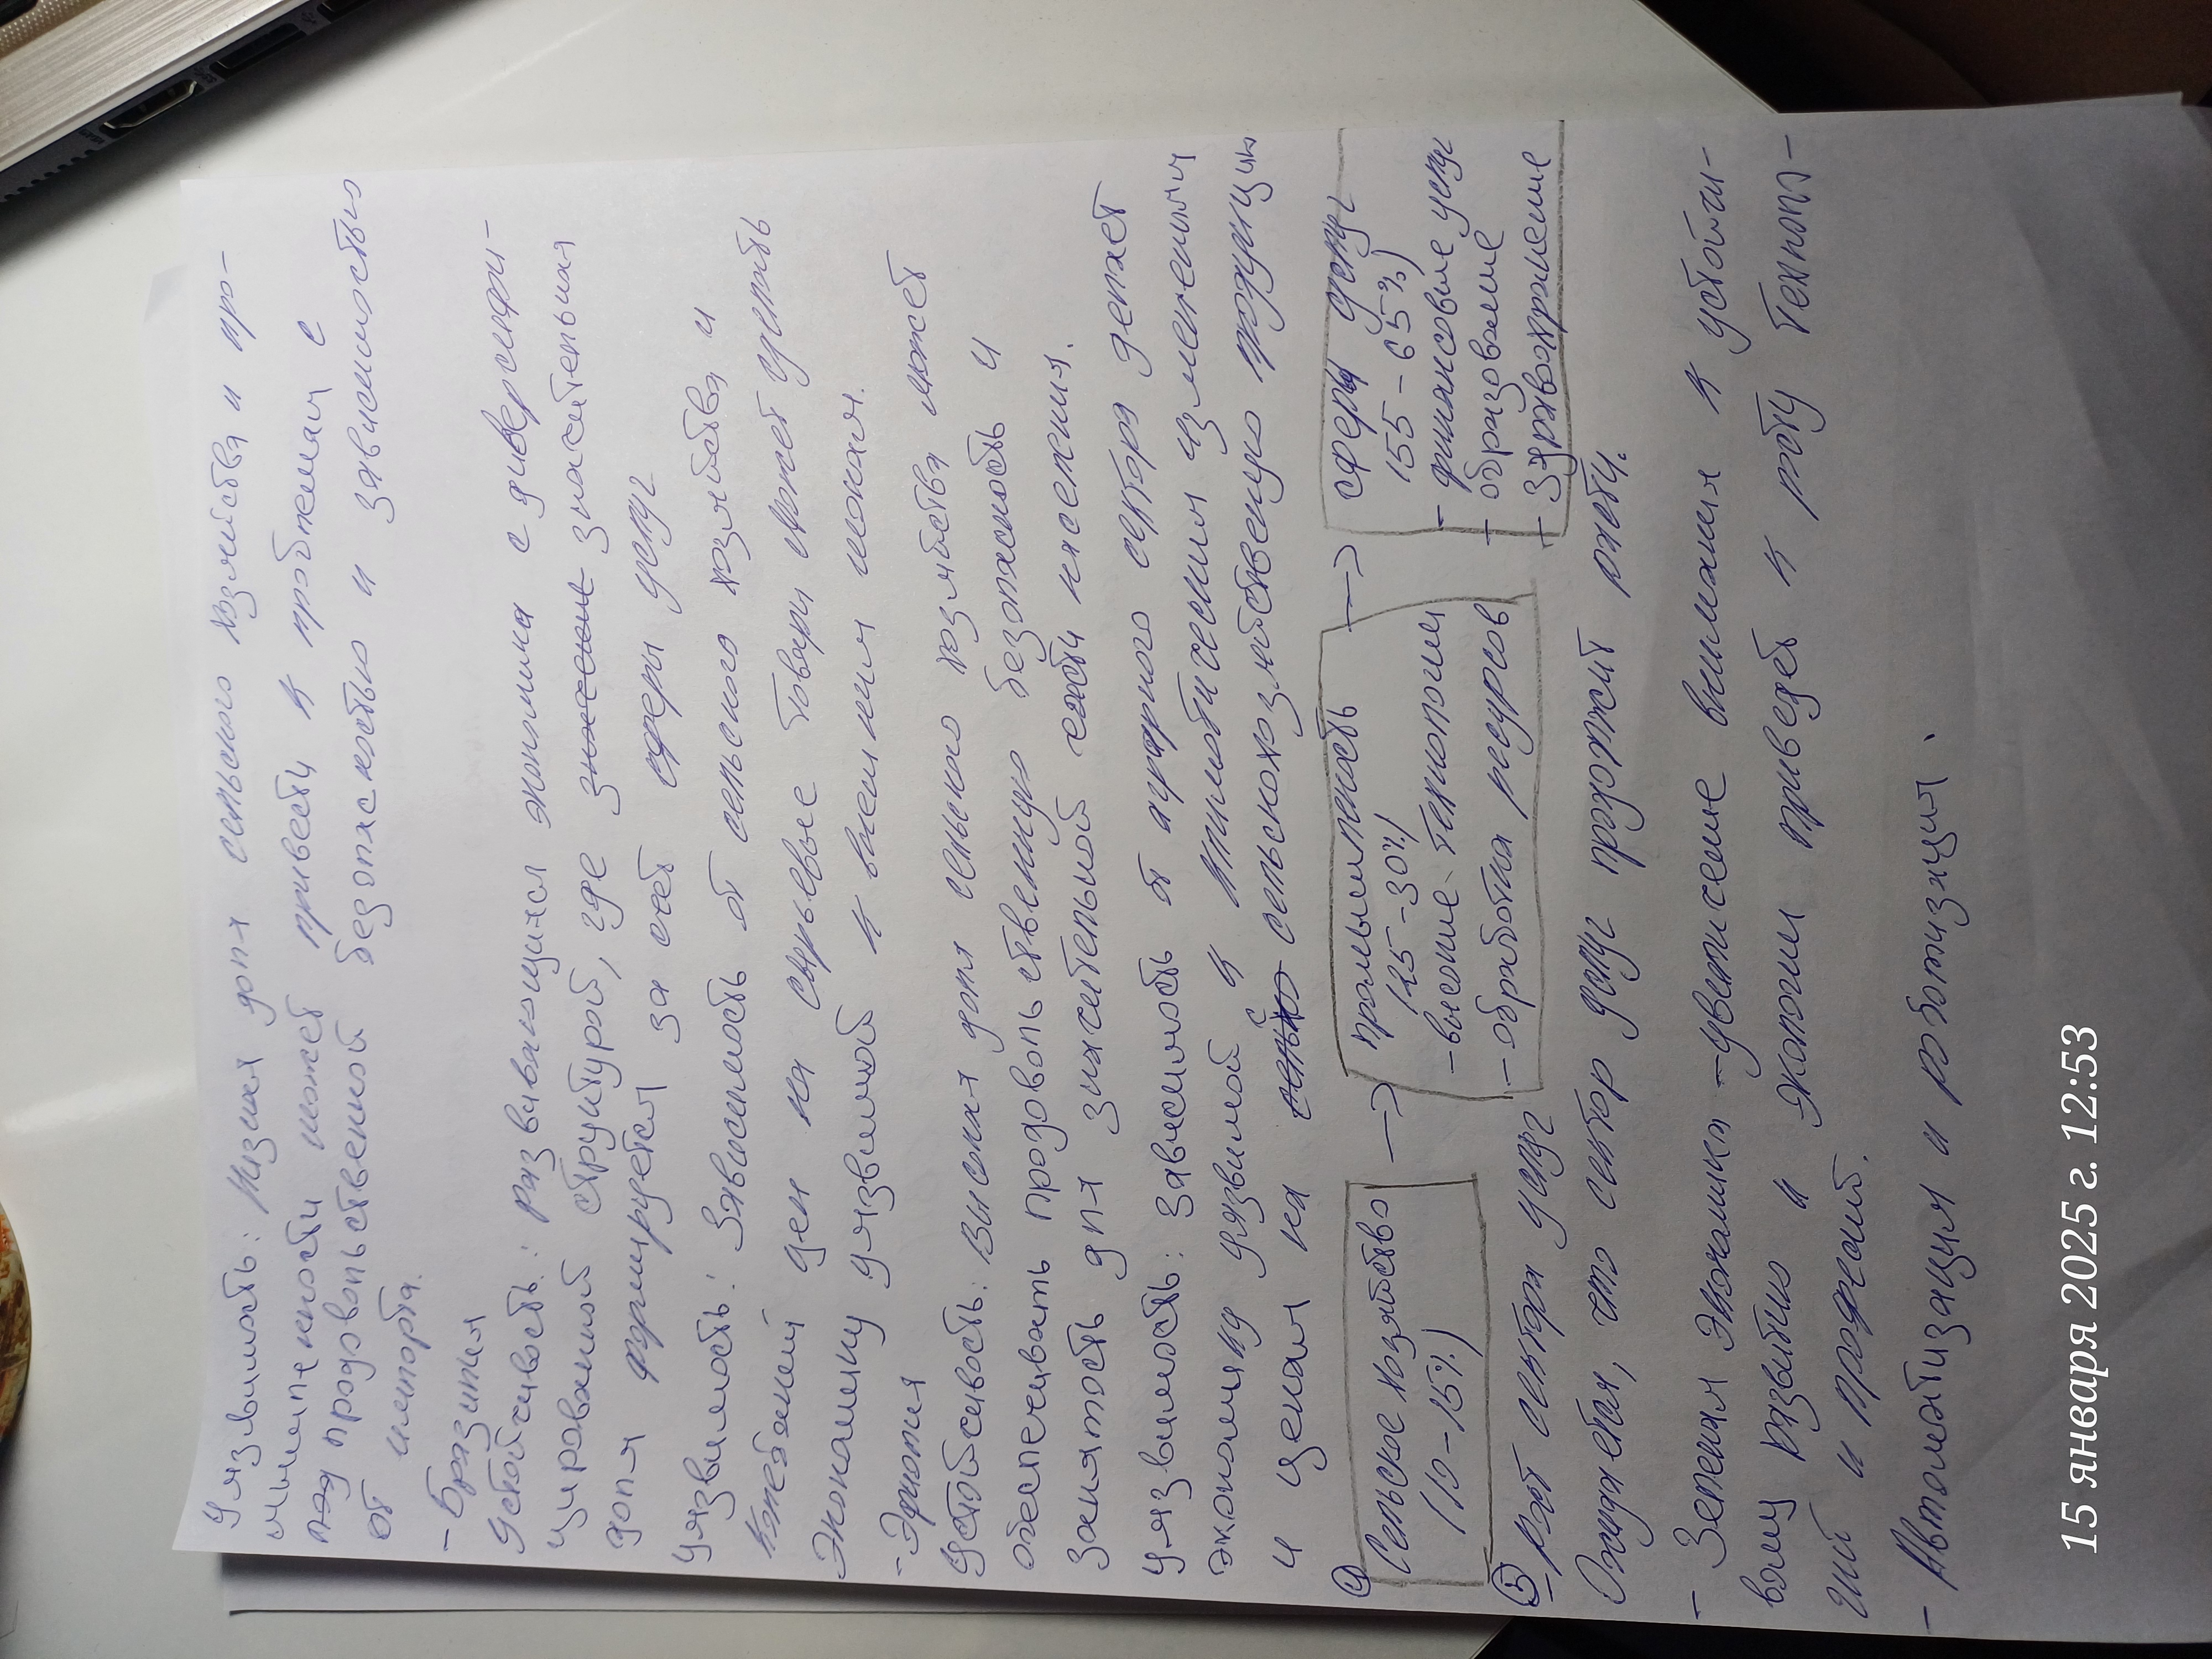 Уязвимость: Низкая доля сельского хозяйства и про-
мышлености может привести к проблемам с
над продовольственной безопасностью и зависимостью
от импорта.
- Бразилия
Устойчивость: развивающаяся экономика с диверсифи-
цированной структурой, где значительная
доля формируется за счет сферы услуг
Уязвимость: Зависимость от сельского хозяйства и
колебаний цен на сырьевые товары может сделать
Экономику уязвимой к внешним шокам.
- Эфиопия
Устойчивость: высокая доля сельского хозяйства может
обеспечивать продовольственную безопасность и
занятость для значительной части населения.
Уязвимость: зависимость от аграрного сектора делает
экономику уязвимой к климатическим изменениям
и ценам на сельскохозяйственую продукцию
④ Сельское хозяйство
(10-15%)
→
промышленость
(25-30%)
- высокие технологии
- обработка ресурсов
→
сферы услуг
155-65%)
- финансовые услуг
- образование
- здравоохранение
⑤
- Рост сектора услуг
Ожидается, что сектор услуг продолжит расти.
- Зеленая Экономика - увеличение внимания к устойчи-
вому развитию и экологии приведет к росту технол-
гий и професий.
- Автоматизация и роботизация.
15 января 2025 г. 12:53